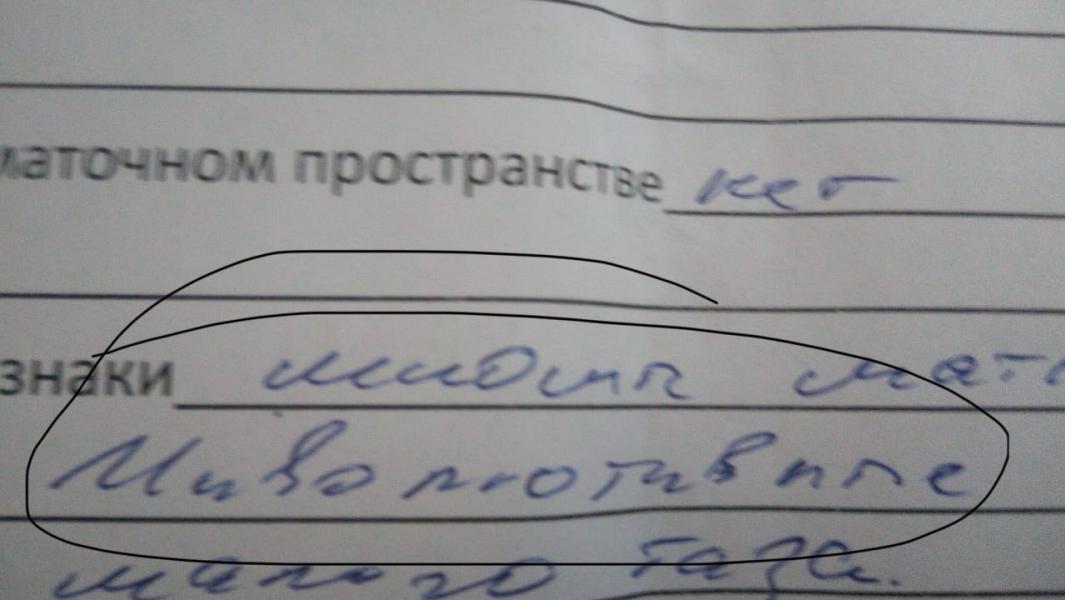 маточном пространстве нет
знаки миомы мат
Инволютивные
малого таза.